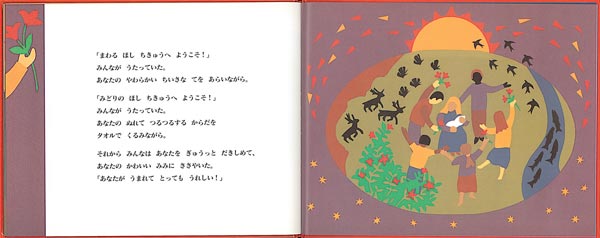 「まわる ほし ちきゅうへ ようこそ！」
みんなが うたっていた。
あなたの やわらかい ちいさな てを あらいながら。
「みどりの ほし ちきゅうへ ようこそ！」
みんなが うたっていた。
あなたの ぬれて つるつるする からだを
タオルで くるみながら。
それから みんなは あなたを ぎゅうっと だきしめて、
あなたの かわいい みみに ささやいた。
「あなたが うまれて とっても うれしい！」